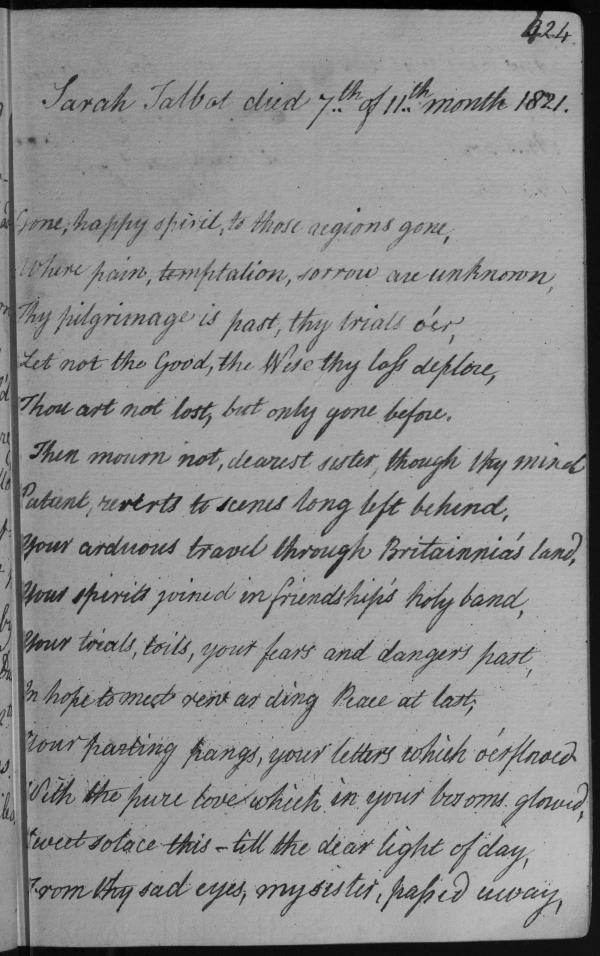 424.
Sarah Talbot died 7th of 11th month 1821.
Gone, happy spirit, to those regions gone,
Where pain, temptation, sorrow are unknown,
Thy pilgrimage is past, thy trials o'er,
Let not the Good, the Wise thy loss deplore,
Thou art not lost, but only gone before.
Then mourn not, dearest sister, though thy mind
Patient, reverts to scenes long left behind,
Your arduous travel through Britainnia's land,
Your spirits joined in friendship's holy band,
Your trials, toils, your fears and dangers past,
In hope to meet rewarding Peace at last;
Your parting pangs, your letters which o'erflowed
With the pure love which in your bosoms glowed,
Sweet solace this - till the dear light of day,
From thy sad eyes, my sister, passed away,